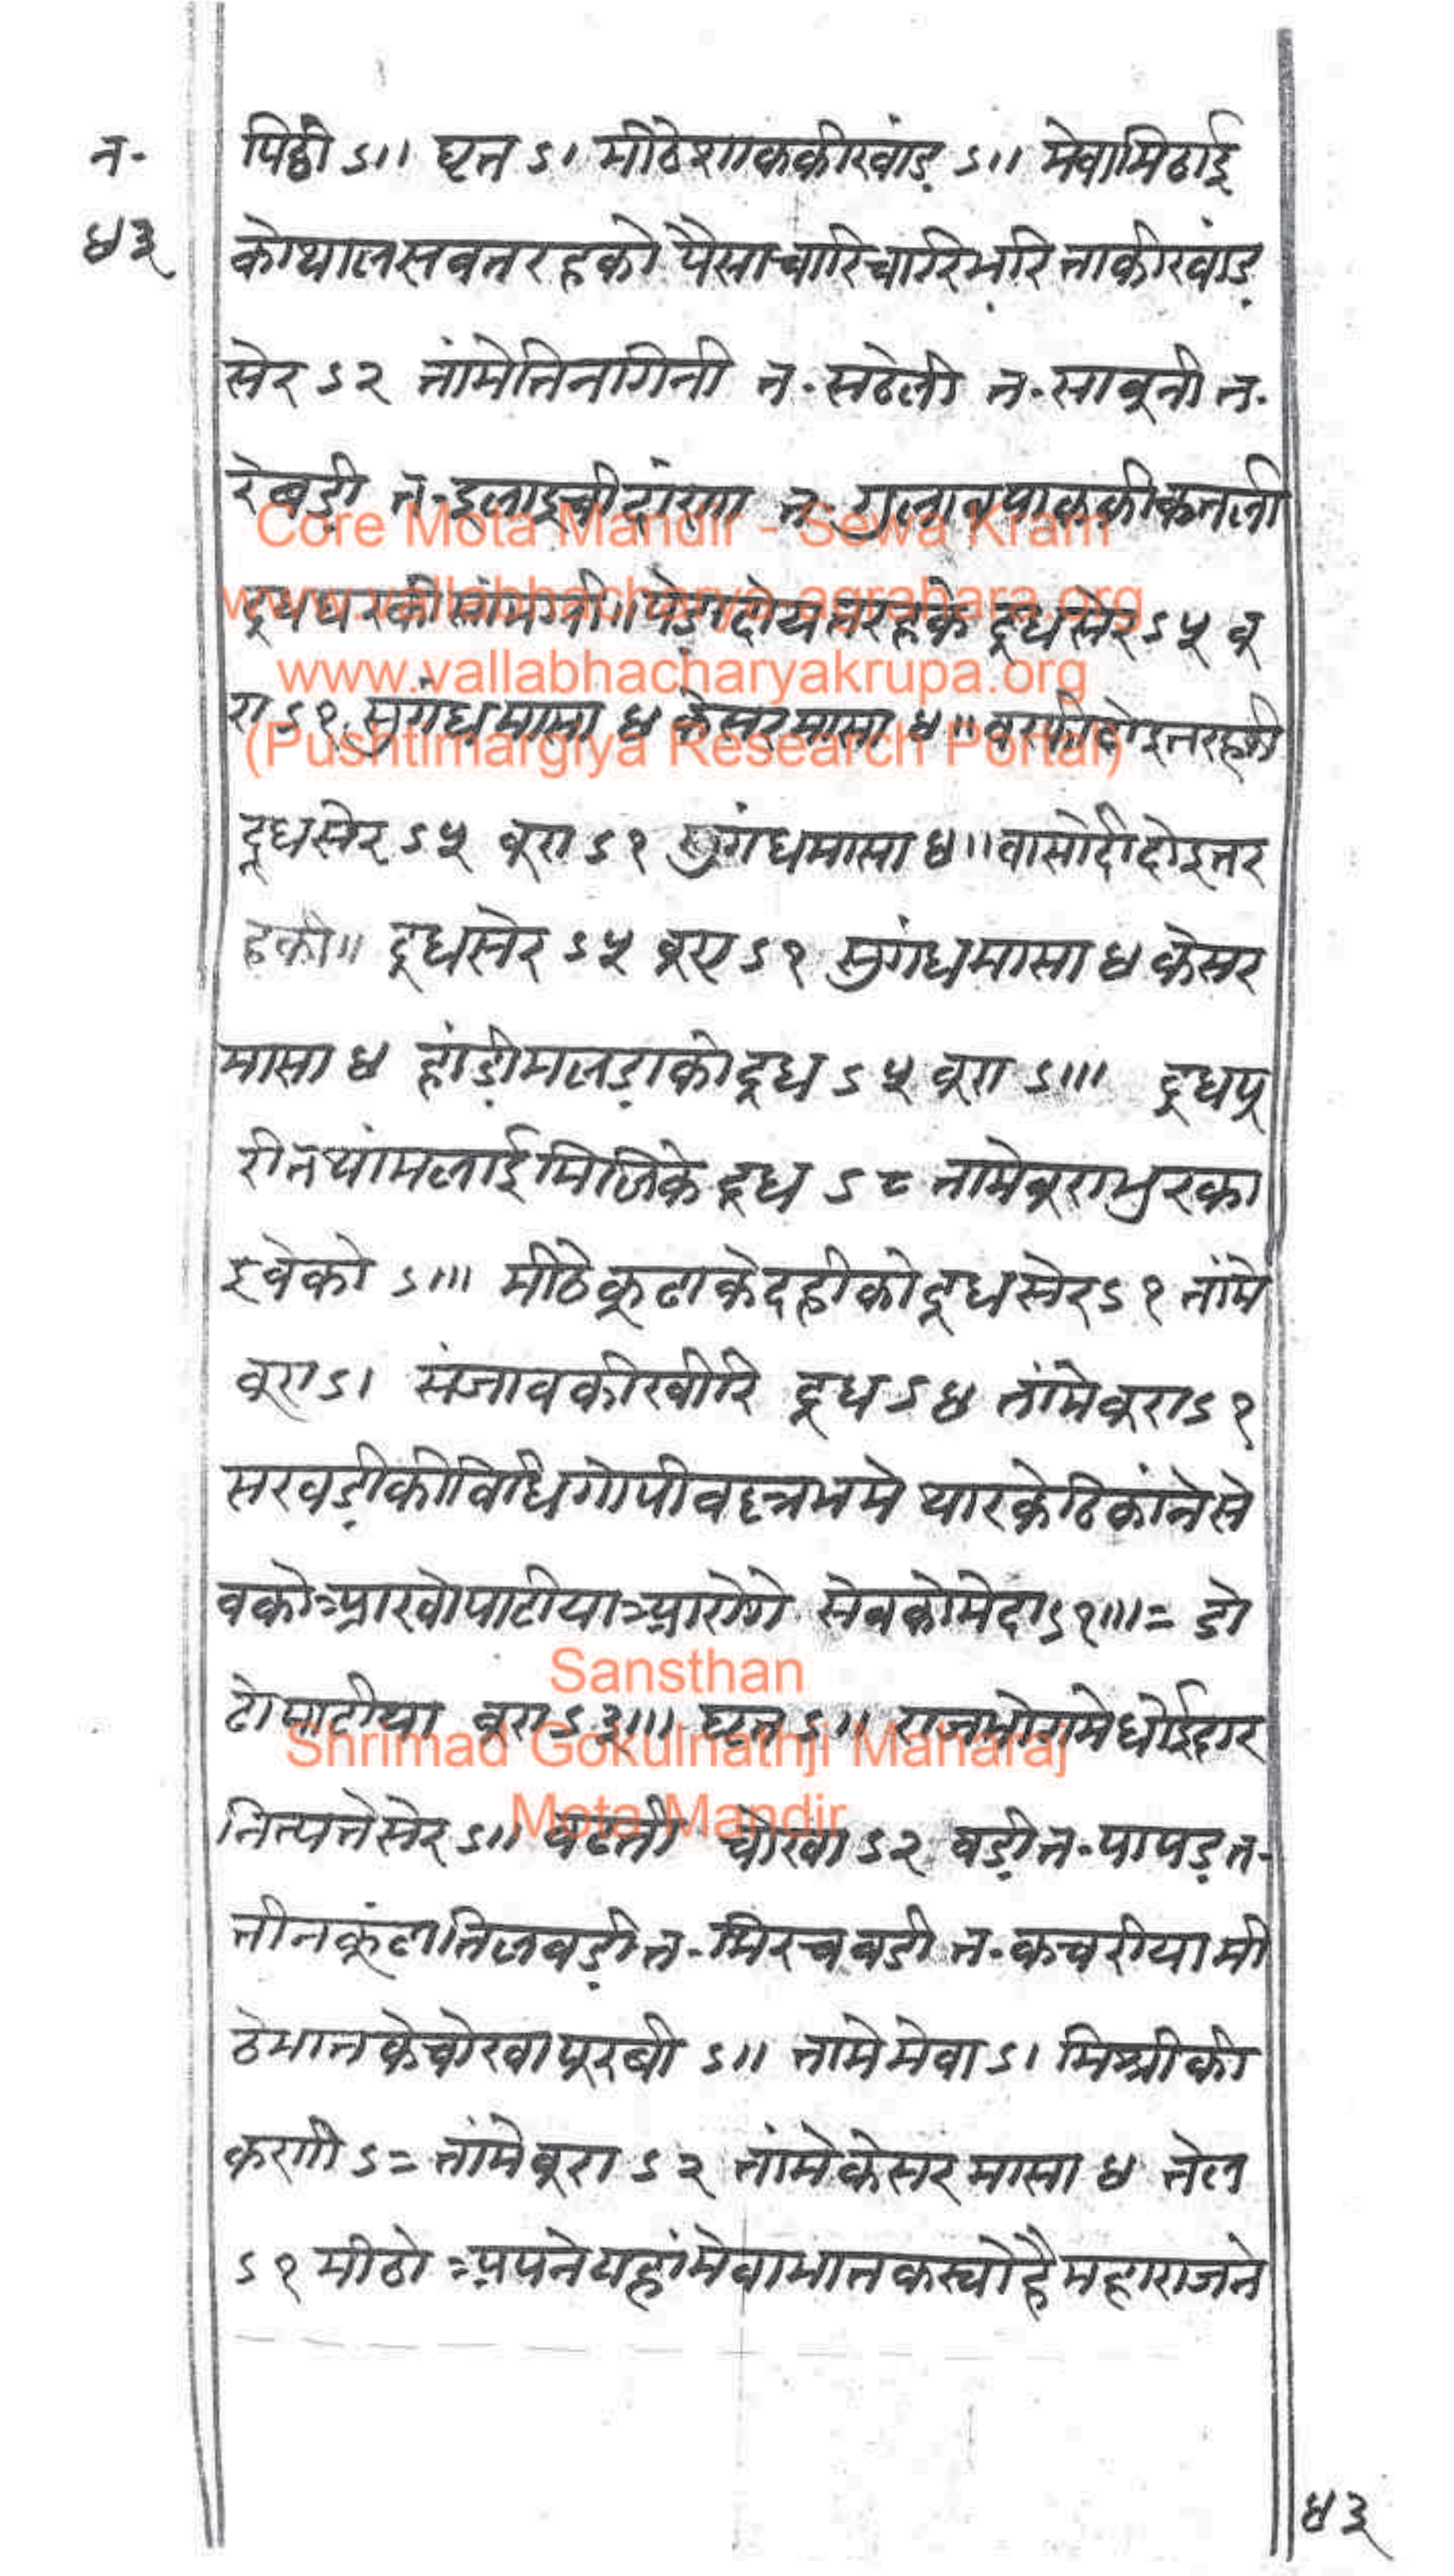 न॰
४३
पिठी ऽ॥ घृत ऽ। मीठेशाककीखांड़ ऽ॥ मेवामिठाई
कोथालसबतरहको पैसाचारिचारिभरि ताकीखांड़
सेर ऽ२ तांमेतिनगिनी त॰ सठेली त॰ साबूनी त॰
रेबड़ी त॰ इलाइचीदांणा त॰ गुलाबपाककीकतली
दूधघरकीसांमग्री॥ पेड़ादोयतरहके दूधसेर ऽ५ बू
रा ऽ१ सुगंधमासा ४ केसरमासा ४॥ बरफीदोइतरहकी
दूधसेर ऽ५ बूरा ऽ१ सुगंधमासा ४॥ वासोंदीदोइतर
हकी॥ दूधसेर ऽ५ बूरा ऽ१ सुगंधमासा ४ केसर
मासा ४ हांड़ीमलड़ाकोदूध ऽ५ बूरा ऽ॥। दूधपू
रीतथांमलाईमिलिके दूध ऽ८ तामेबूराभुरका
इवेको ऽ॥। मीठेकूढाकेदहीकोदूधसेर ऽ१ तांमे
बूरा ऽ। संजावकीखीरि दूध ऽ४ तांमेबूरा ऽ१
सखड़ीकीविधि गोपीवल्लभमे थारकेठिकांनेसे
वकोआखोपाटीयाआरोगे सेवकोमेदा ऽ१॥।= छो
टोपाटीया बूरा ऽ३॥। घृत ऽ॥ राजभोगमेधोईदार
नित्यतेसेर ऽ॥ बढती चोखा ऽ२ बड़ी त॰ पापड़ त॰
तीनकूंटातिलवड़ी त॰ मिरचबडी त॰ कचरीयामी
ठेभातकेचोखापूरबी ऽ॥ तामेमेवा ऽ। मिश्रीकी
कणी ऽ= तांमेबूरा ऽ२ तांमेकेसरमासा ४ तेल
ऽ१ मीठो अपनेयहांमेवाभातकस्योहैमहाराजने
४३
Core Mota Mandir - Sewa Kram
www.vallabhacharya-agrahara.org
www.vallabhacharyakrupa.org
(Pushtimargiya Research Portal)
Sansthan
Shrimad Gokulnathji Maharaj
Mota Mandir